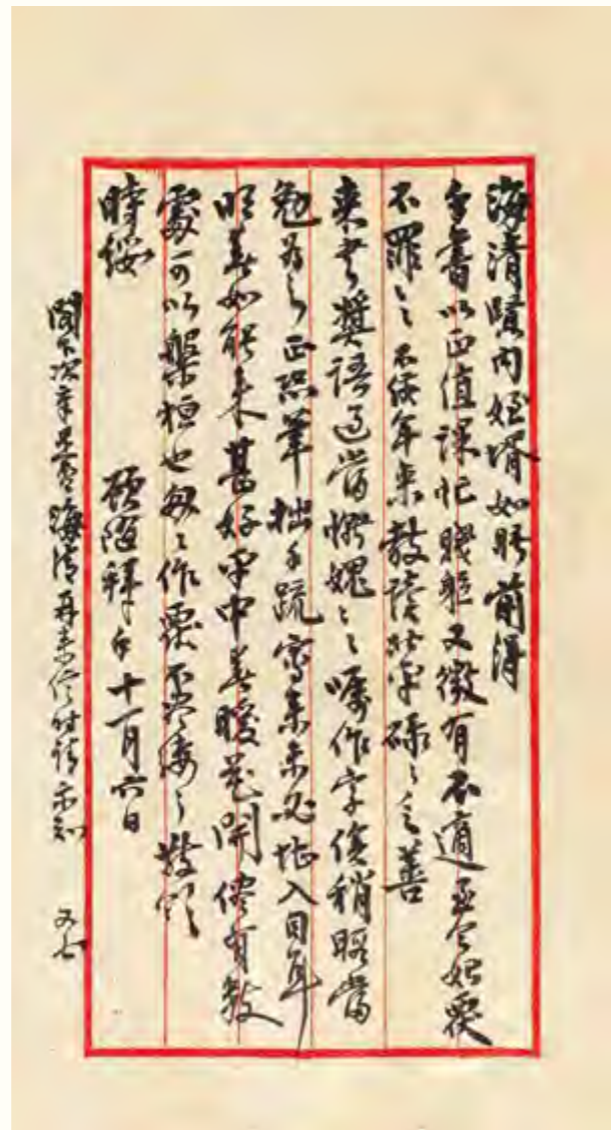 海清賢內姪壻如晤前得
手書以正值課忙賤軀又微有不適至今始覆
不罪々々不佞年來教讀此宇碌々無善
來書奬語過當慚媿々々囑作字俟稍暇當
勉為之正恐筆拙手疏寫來未必堪入目耳
明春如能來甚好甲中春暖花開儘有教
處可以槃桓也匆々作覆不盡縷々敬頌
時綏
頑陸拜手十一月六日
閣下次章兄處海清再來信時請示知 又七